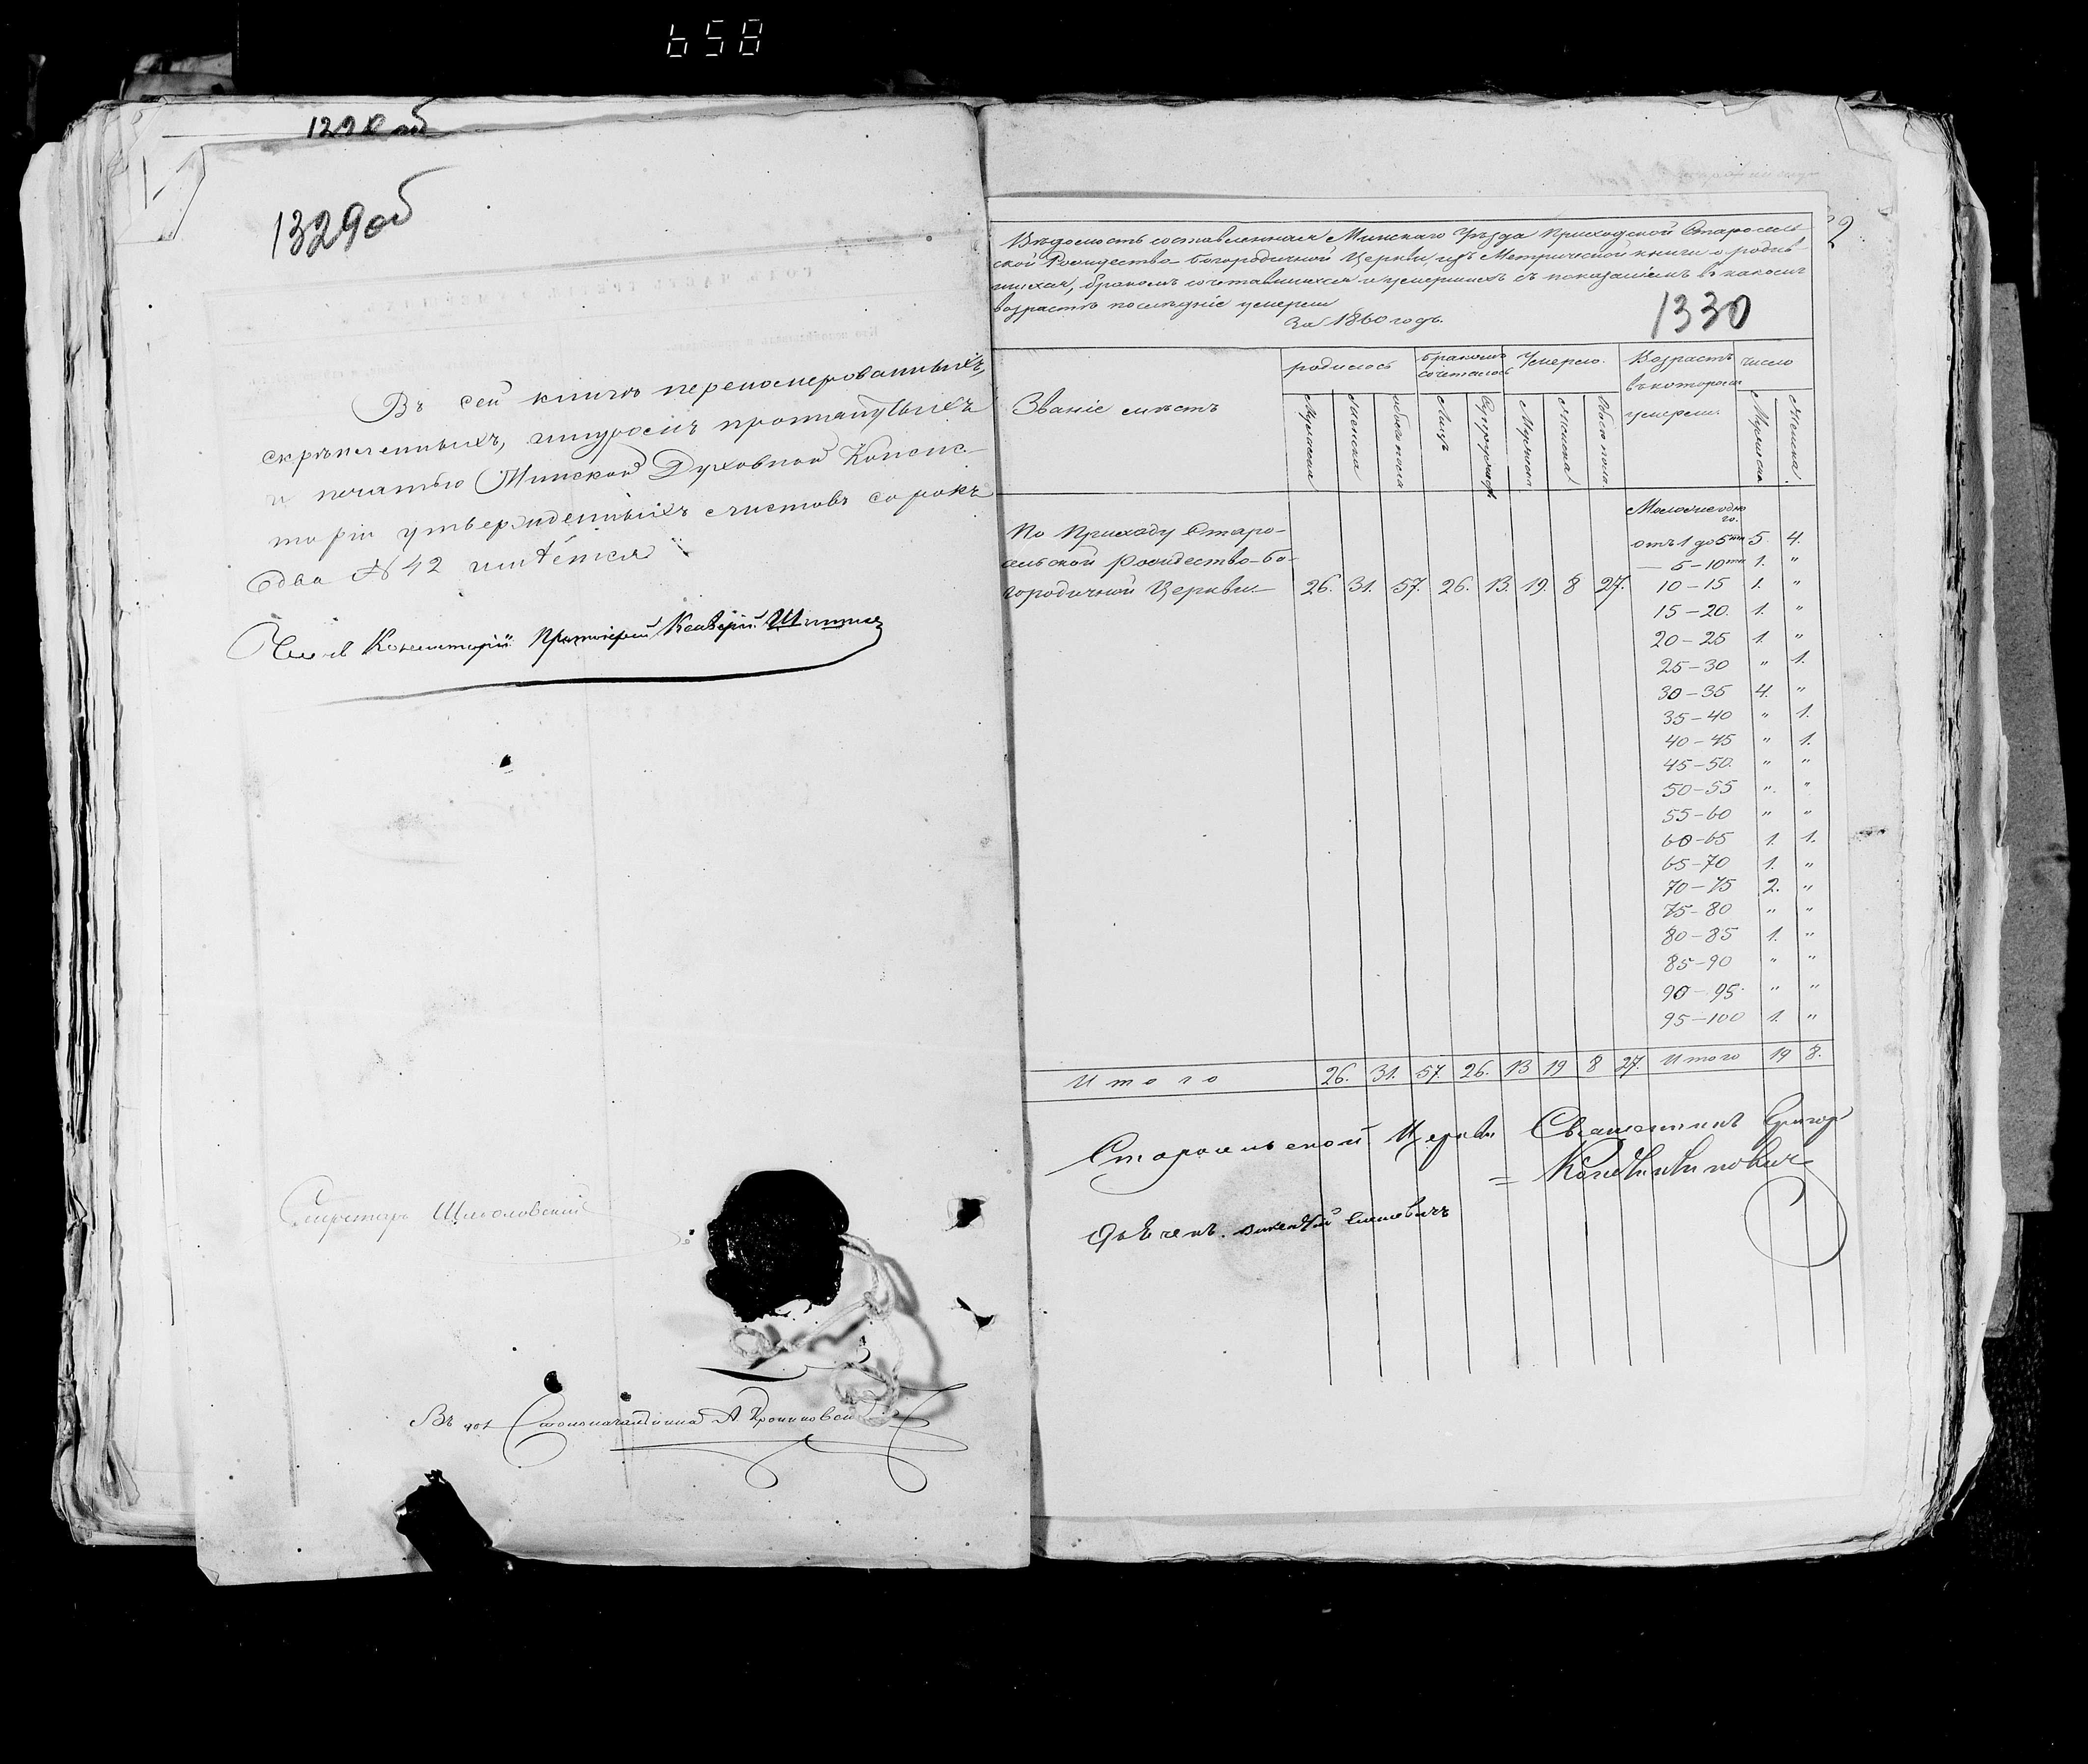 658
1329 об
1329 об
Въ сей книгѣ перенумерованныхъ,
скрѣпленныхъ, шнуромъ протянутыхъ
и печатью Минской Духовной Консис-
торіи утвержденныхъ листовъ сорокъ
два № 42 имѣется
Членъ Консисторіи Протоіерей Ксаверій
Секретарь
Въ дол. Столоначальника А.
Вѣдомость составленная Минскаго Уѣзда Приходской Старосель-
ской Рождество-Богородичной Церкви, изъ Метрической книги о родив-
шихся, бракомъ сочетавшихся и умершихъ съ показаніемъ въ какомъ
возрастѣ послѣдніе умерли
За 1860 годъ.
1330
Званіе мѣстъ
родилось
бракомъ сочеталось
Умерло.
Возрастъ въ которомъ умерли
число
Мужска
Женска
обоего пола
Лицъ
Супружествъ
Мужска
Женска
Обоего пола
Мужска
Женска
По Приходу Старо-
сельской Рождество-Бо-
городичной Церкви 26. 31. 57. 26. 13. 19. 8 27.
отъ 1 до 5ти 5. 4.
— 5-10ти 1. "
10-15 1. "
15-20. 1. "
20-25 1. "
25-30 " 1.
30-35 4. "
35-40 " 1.
40-45 " 1.
45-50. " "
50-55 " "
55-60 " "
60-65 1. 1.
65-70 1. "
70-75 2. "
75-80 " "
80-85 1. "
85-90 " "
90-95. " "
95-100 1. "
Итого 26. 31. 57. 26. 13 19 8 27. Итого 19 8.
Старосельской Церкви Священникъ Григор
Дьячекъ Викентій